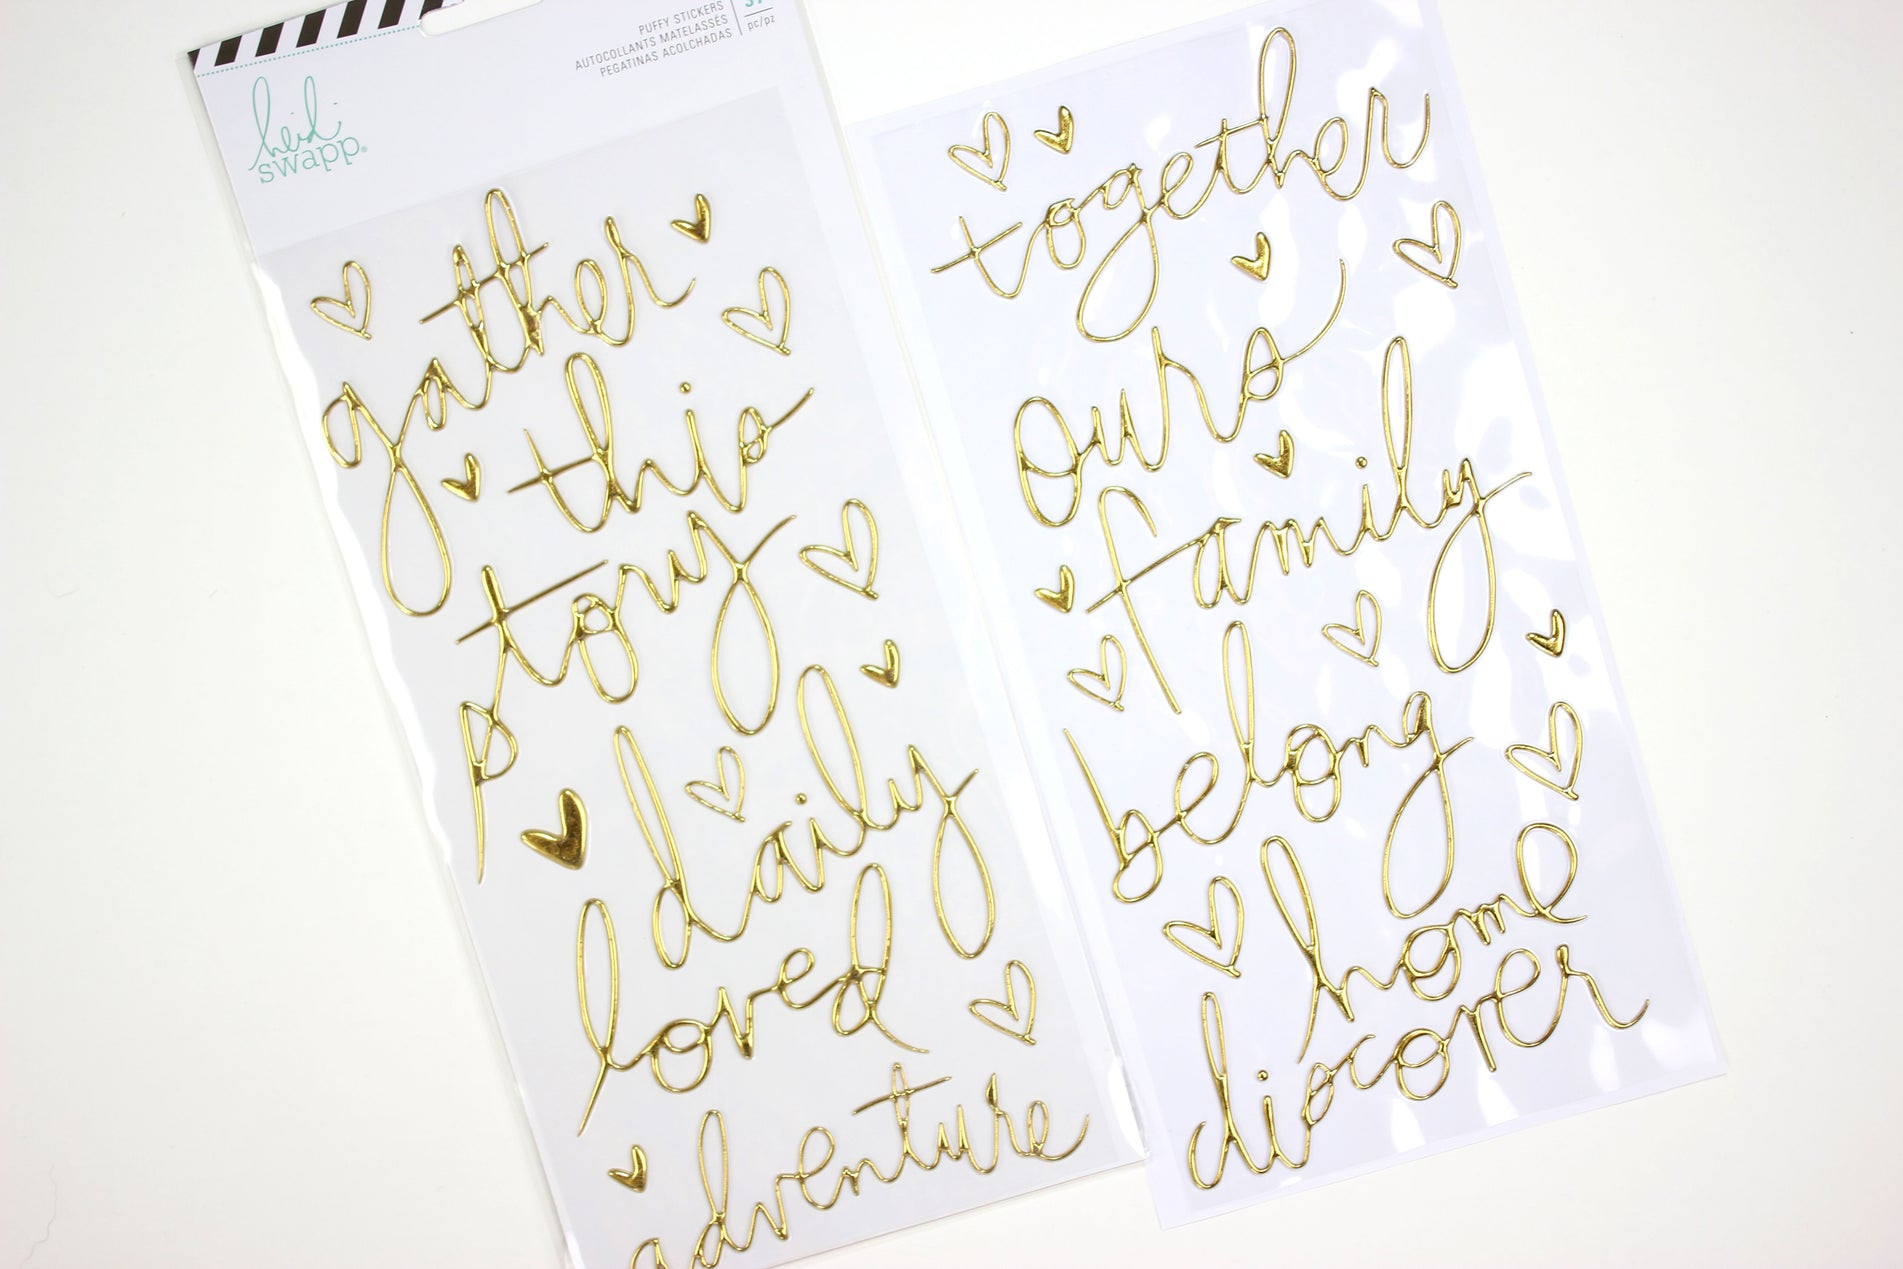 PUFFY STICKERS
AUTOCOLLANTS MATELASSÉS
PEGATINAS ACOLCHADAS
pc/pz
heidi
swapp®
gather
this
story
daily
loved
adventure
together
ours
family
belong
home
discover